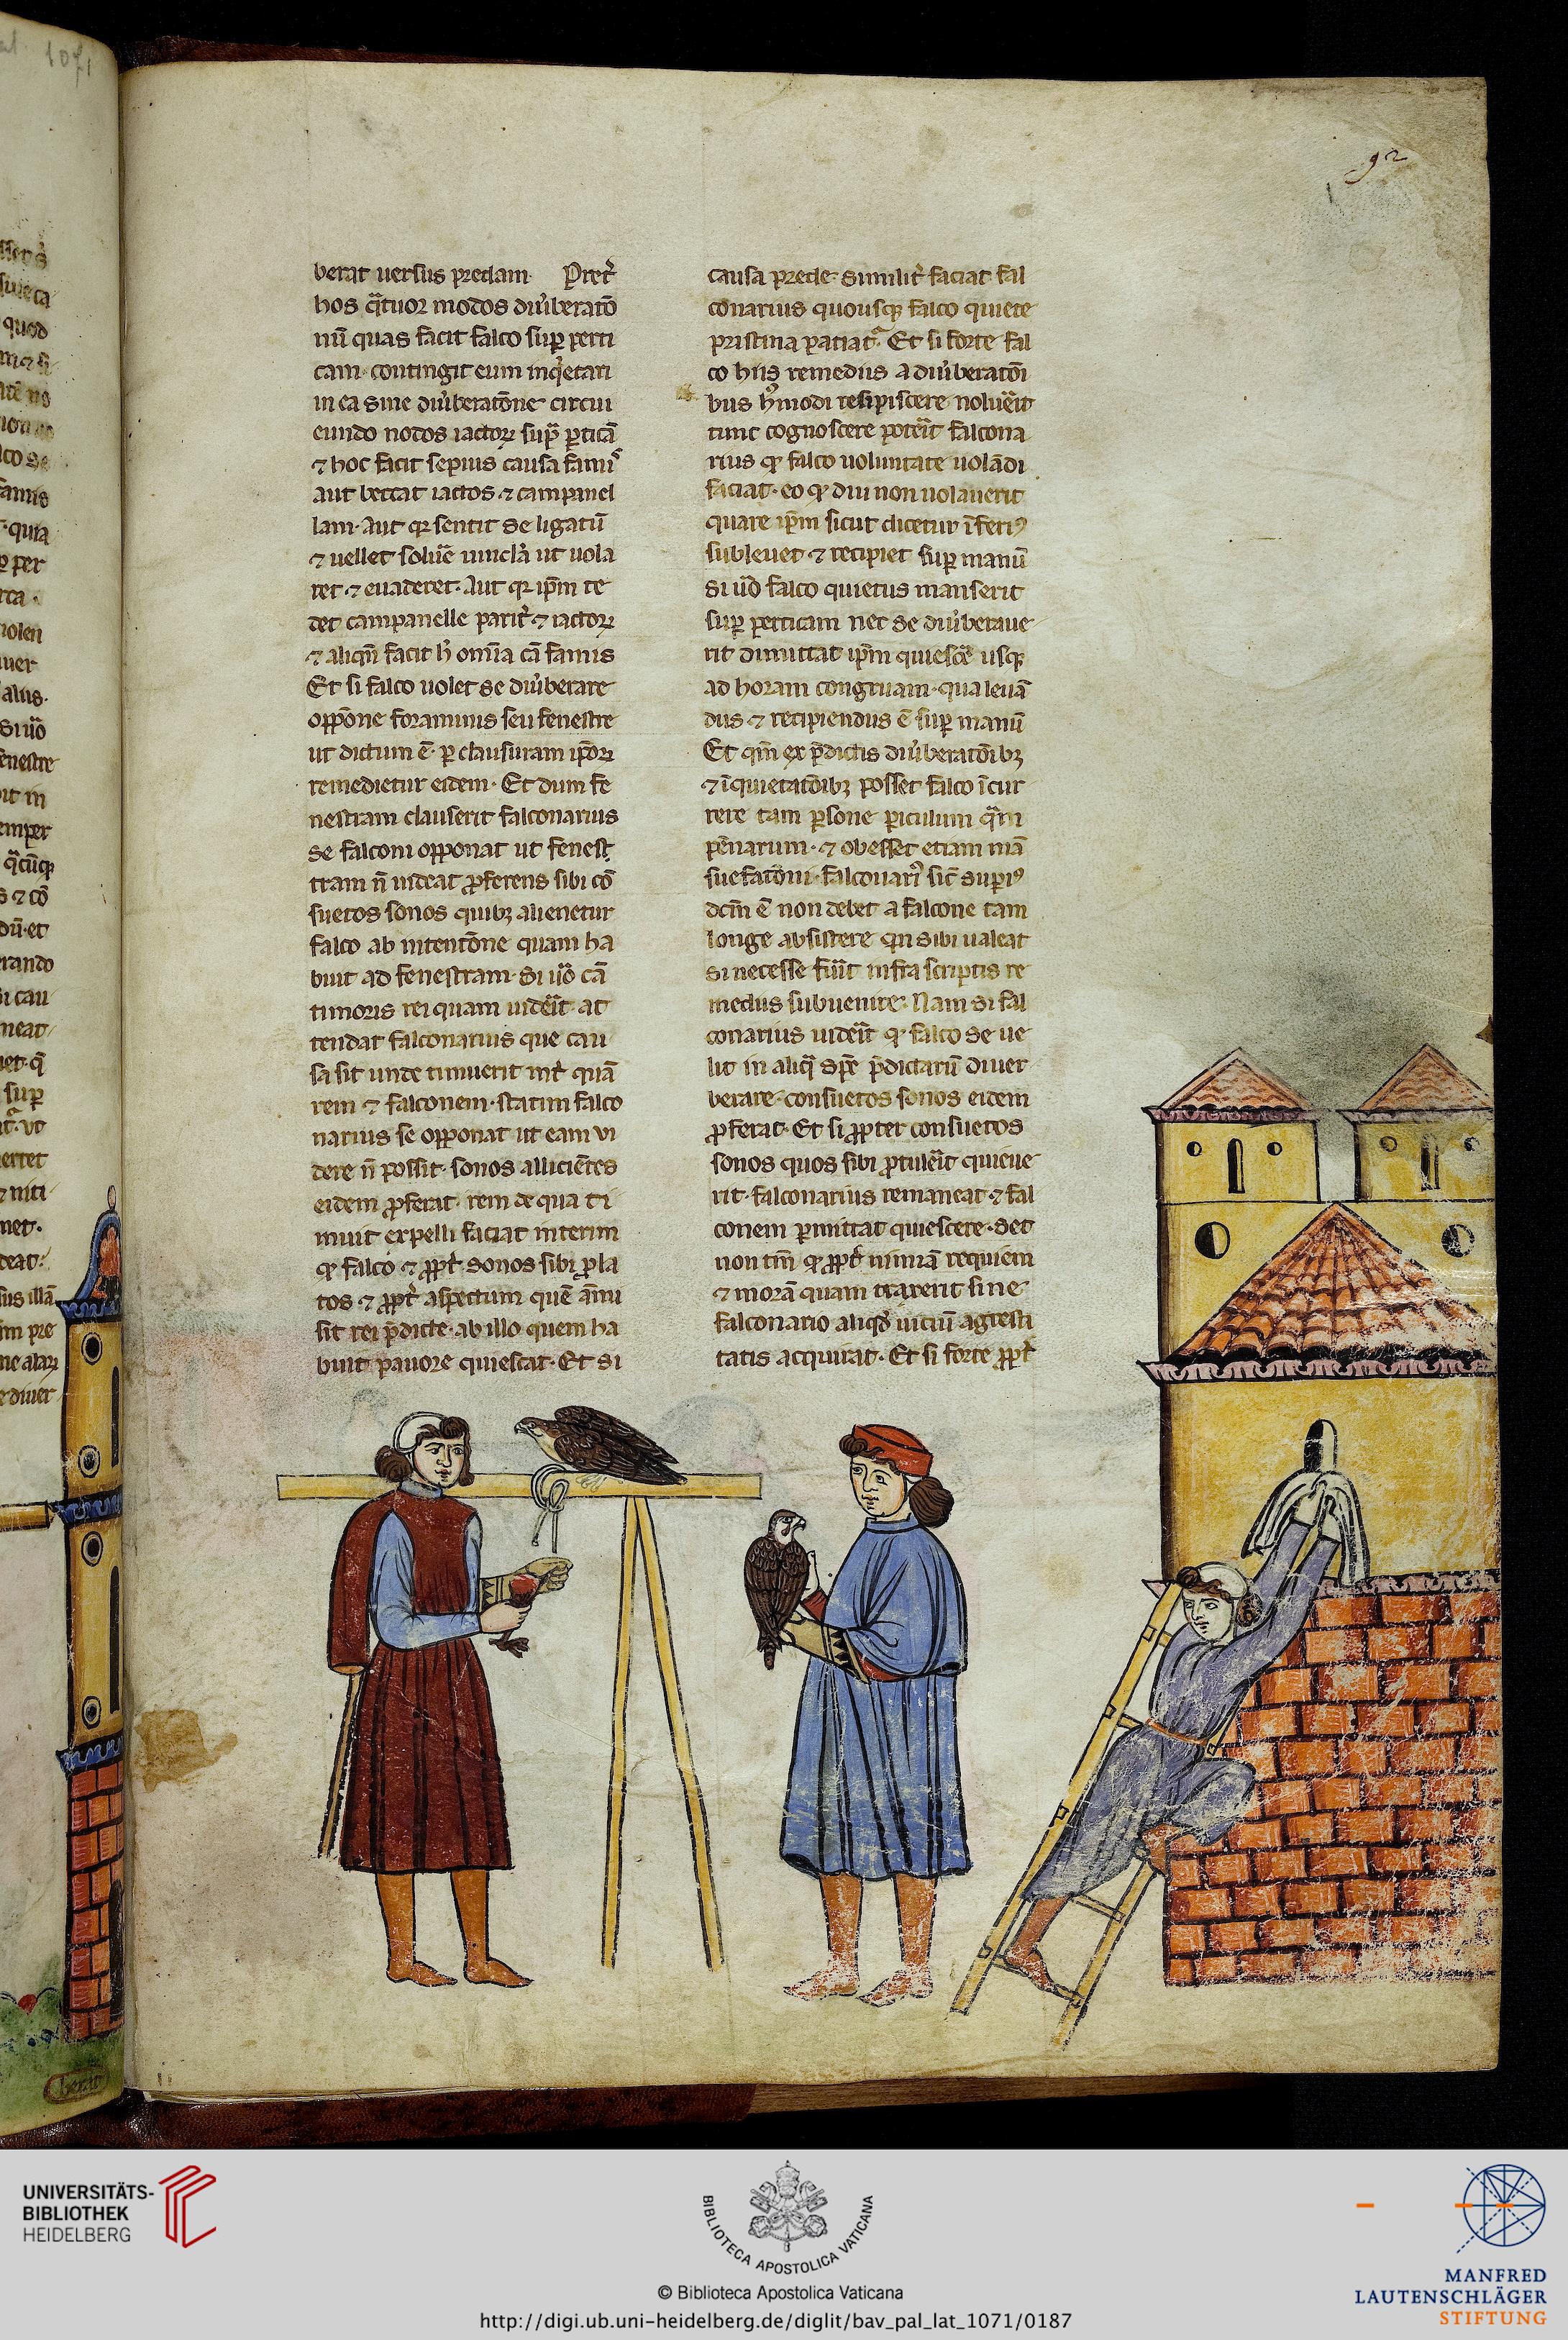 92
berat uersus predam. Pret̓
hos q̄tuor modos diu̓beratō
nū quas facit falco sup̱ perti
cam. contingit eum inq̓etari
in ea sine diu̓beratōne circui
eundo nodos iactoꝝ sup̄ ꝑticā
⁊ hoc facit sepius causa famis
aut beccat iactos ⁊ campanel
lam. Aut qꝛ sentit se ligatū
⁊ uellet solu̓e uincl̓a ut uola
ret ⁊ euaderet. Aut qꝛ ip̄m te
det campanelle parit̓ ⁊ iactoꝝ
⁊ aliqn̄ facit h̓ om̄ia cā famis
Et si falco uolet se diu̓berare
opp̄one foraminis seu fenestre
ut dictum ē. ꝑ clausuram ip̄oꝝ
remedietur eidem. Et dum fe
nestram clauserit falconarius
se falconi opponat ut fenest
tram n̄ uideat ꝓferens sibi cō
suetos sonos quibꝫ alienetur
falco ab intentōne quam ha
buit ad fenestram. Si uō cā
timoris rei quam uide̓it. at
tendat falconarius que cau
sa sit unde timuerit int̓ quā
rem ⁊ falconem. statim falco
narius se opponat ut eam vi
dere n̄ possit. sonos allicie̅tes
eidem ꝓferat. rem de qua ti
muit expelli faciat interim
ꝙ falco ⁊ ꝓpt̓ sonos sibi ꝓla
tos ⁊ ꝓpt̓ aspectum quē āmi
sit rei p̄dicte. ab illo quem ha
buit pauore quiescat. Et si
causa prede. similit̓ faciat fal
conarius quousqꝫ falco quiete
pristina patiat᷑. Et si forte fal
co hiis remediis a diu̓beratōi
bus h̓modi resipiscere nolue̓it
tunc cognoscere pote̓it falcona
rius ꝙ falco uoluntate uolādi
faciat. eo ꝙ diu non uolauerit
quare ip̄m sicut dicetur īferiꝰ
subleuet ⁊ recipiet sup̱ manū
Si uō falco quietus manserit
sup̱ perticam nec se diu̓beraue
rit dimittat ip̄m quiesce̓ usqꝫ
ad horam congruam. qua leuā
dus ⁊ recipiendus ē sup̱ manū
Et qm̄ ex p̄dictis diu̓beratōibꝫ
⁊ īquietatōibꝫ posset falco īcur
rere tam ꝑsone ꝑiculum q̄m
pēnarum. ⁊ obesset etiam mā
suefatōni. falconariꝰ sic̄ suꝑiꝰ
dcm̄ ē non debet a falcone tam
longe absistere qn̄ sibi ualeat
si necesse fu̓it infra scriptis re
mediis subuenire. Nam si fal
conarius uide̓it ꝙ falco se ue
lit in aliq̄ spē p̄dictarū diuer
berare. consuetos sonos eidem
ꝓferat. Et si ꝓpter consuetos
sonos quos sibi ꝓtule̓it quieue
rit. falconarius remaneat ⁊ fal
conem ꝑmittat quiescere. Set
non tm̄ ꝙ ꝓpt̓ nimiā requiem
⁊ morā quam traxerit sine
falconario aliqd̓ uiciū agresti
tatis acquirat. Et si forte ꝓpt̓
UNIVERSITÄTS-
BIBLIOTHEK
HEIDELBERG
BIBLIOTECA APOSTOLICA VATICANA
© Biblioteca Apostolica Vaticana
http://digi.ub.uni-heidelberg.de/diglit/bav_pal_lat_1071/0187
MANFRED
LAUTENSCHLÄGER
STIFTUNG